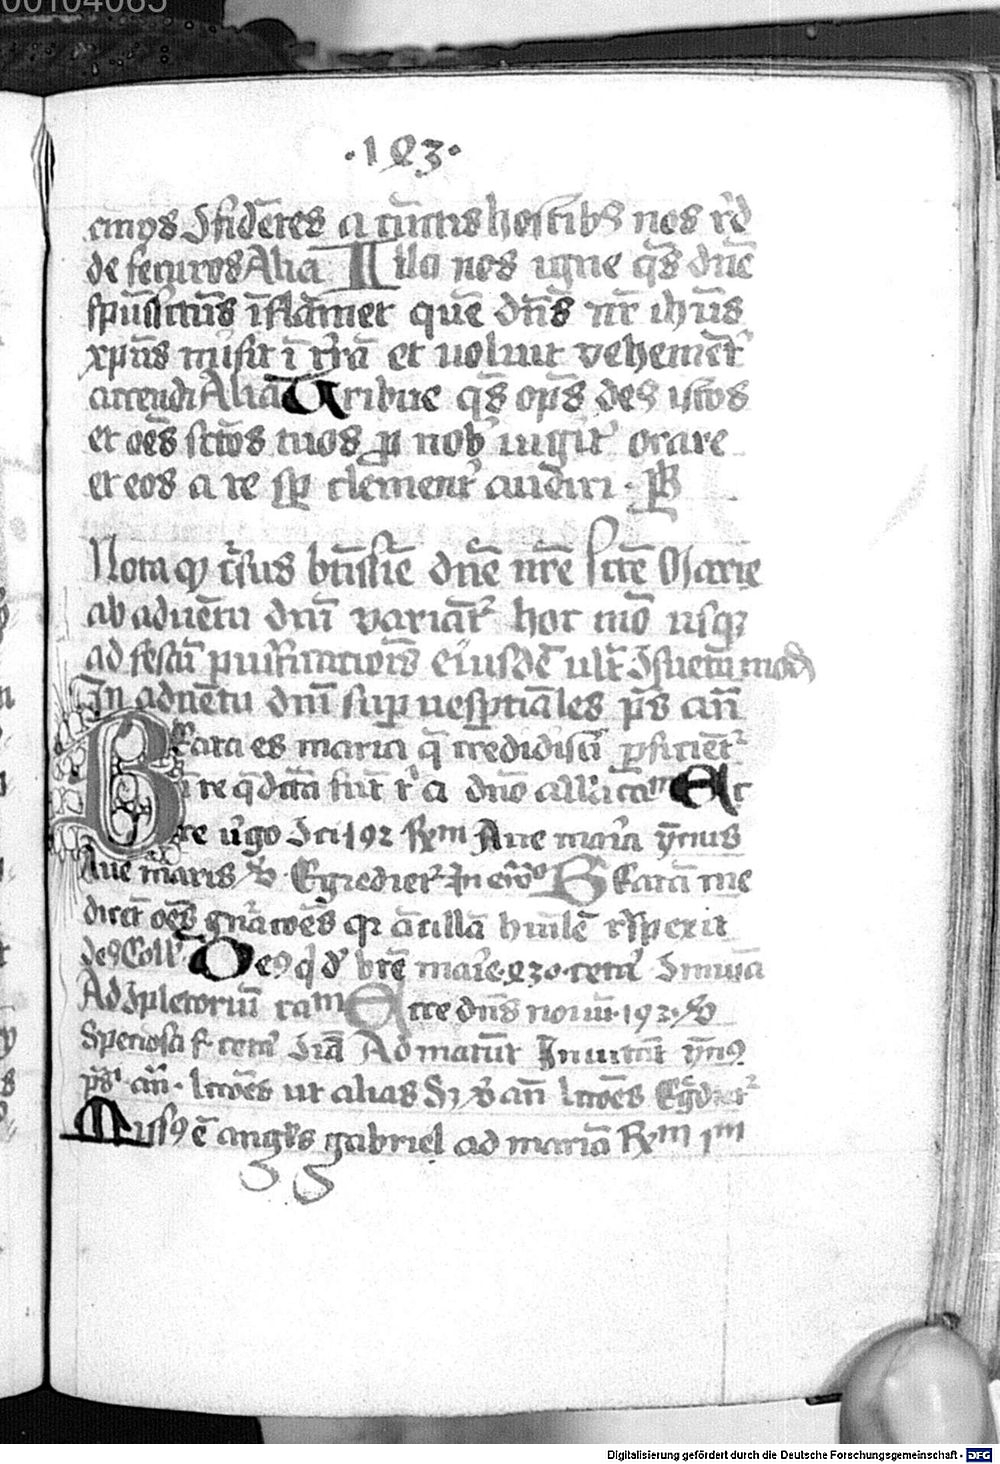 00104065
·1Q3·
cinijs Ɔfidētes a cūctis hostib9 nos r̄d
de securos Alia Illo nos igne q̄s dn̄e
sp̄ussc̄tus īflāmet quē dn̄s nr̄ ihūs
xp̄us misit ī t̄rā et uoluit vehemēt̉
accendi Alia Tribue q̄s op̄s de9 istos
et oēs sc̄tos tuos ꝓ nob̉ iugit̉ orare
et eos a te sp̄ clement̉ audiri
Nota ꝙ c̉sus bt̄issīe dn̄e nr̄e sc̄te Marie
ab aduētu dn̄i variat̉ hoc mō usqꝫ
ad festū purificatiōis eiusdē ult̉ Ɔsuetū modū
In aduētu dn̄i sup uesꝑtiales p̄s an̄
Beata es maria q̄ credidisti ꝑficiēt̉
ī te q̄ dc̄ta sūt t̉ a dn̄o all̄a cam Ec
ce v̉go Ɔci 192 Rm Aue maria ymus
Aue maris Egrediet̉ In ew̄o Beatā me
dicēt oēs gn̄atōes q̉ ācillā humilē respexit
de9 Coll̉ De9 q̉ d̉ bt̄e marie 230 cetā Ɔmuia
Ad Ɔpletoriū cam Ecce dn̄s noiū 192
Speciosa f̉ cetā Ɔiā Ad matut̄ Inuitat̄ ymn9
p̄s an̄ lc̄toes ut alias S3 an̄ lc̄toes Egredit̉
Miss9 ē angl̉s gabriel ad mariā Rm 1m
Digitalisierung gefördert durch die Deutsche Forschungsgemeinschaft - DFG